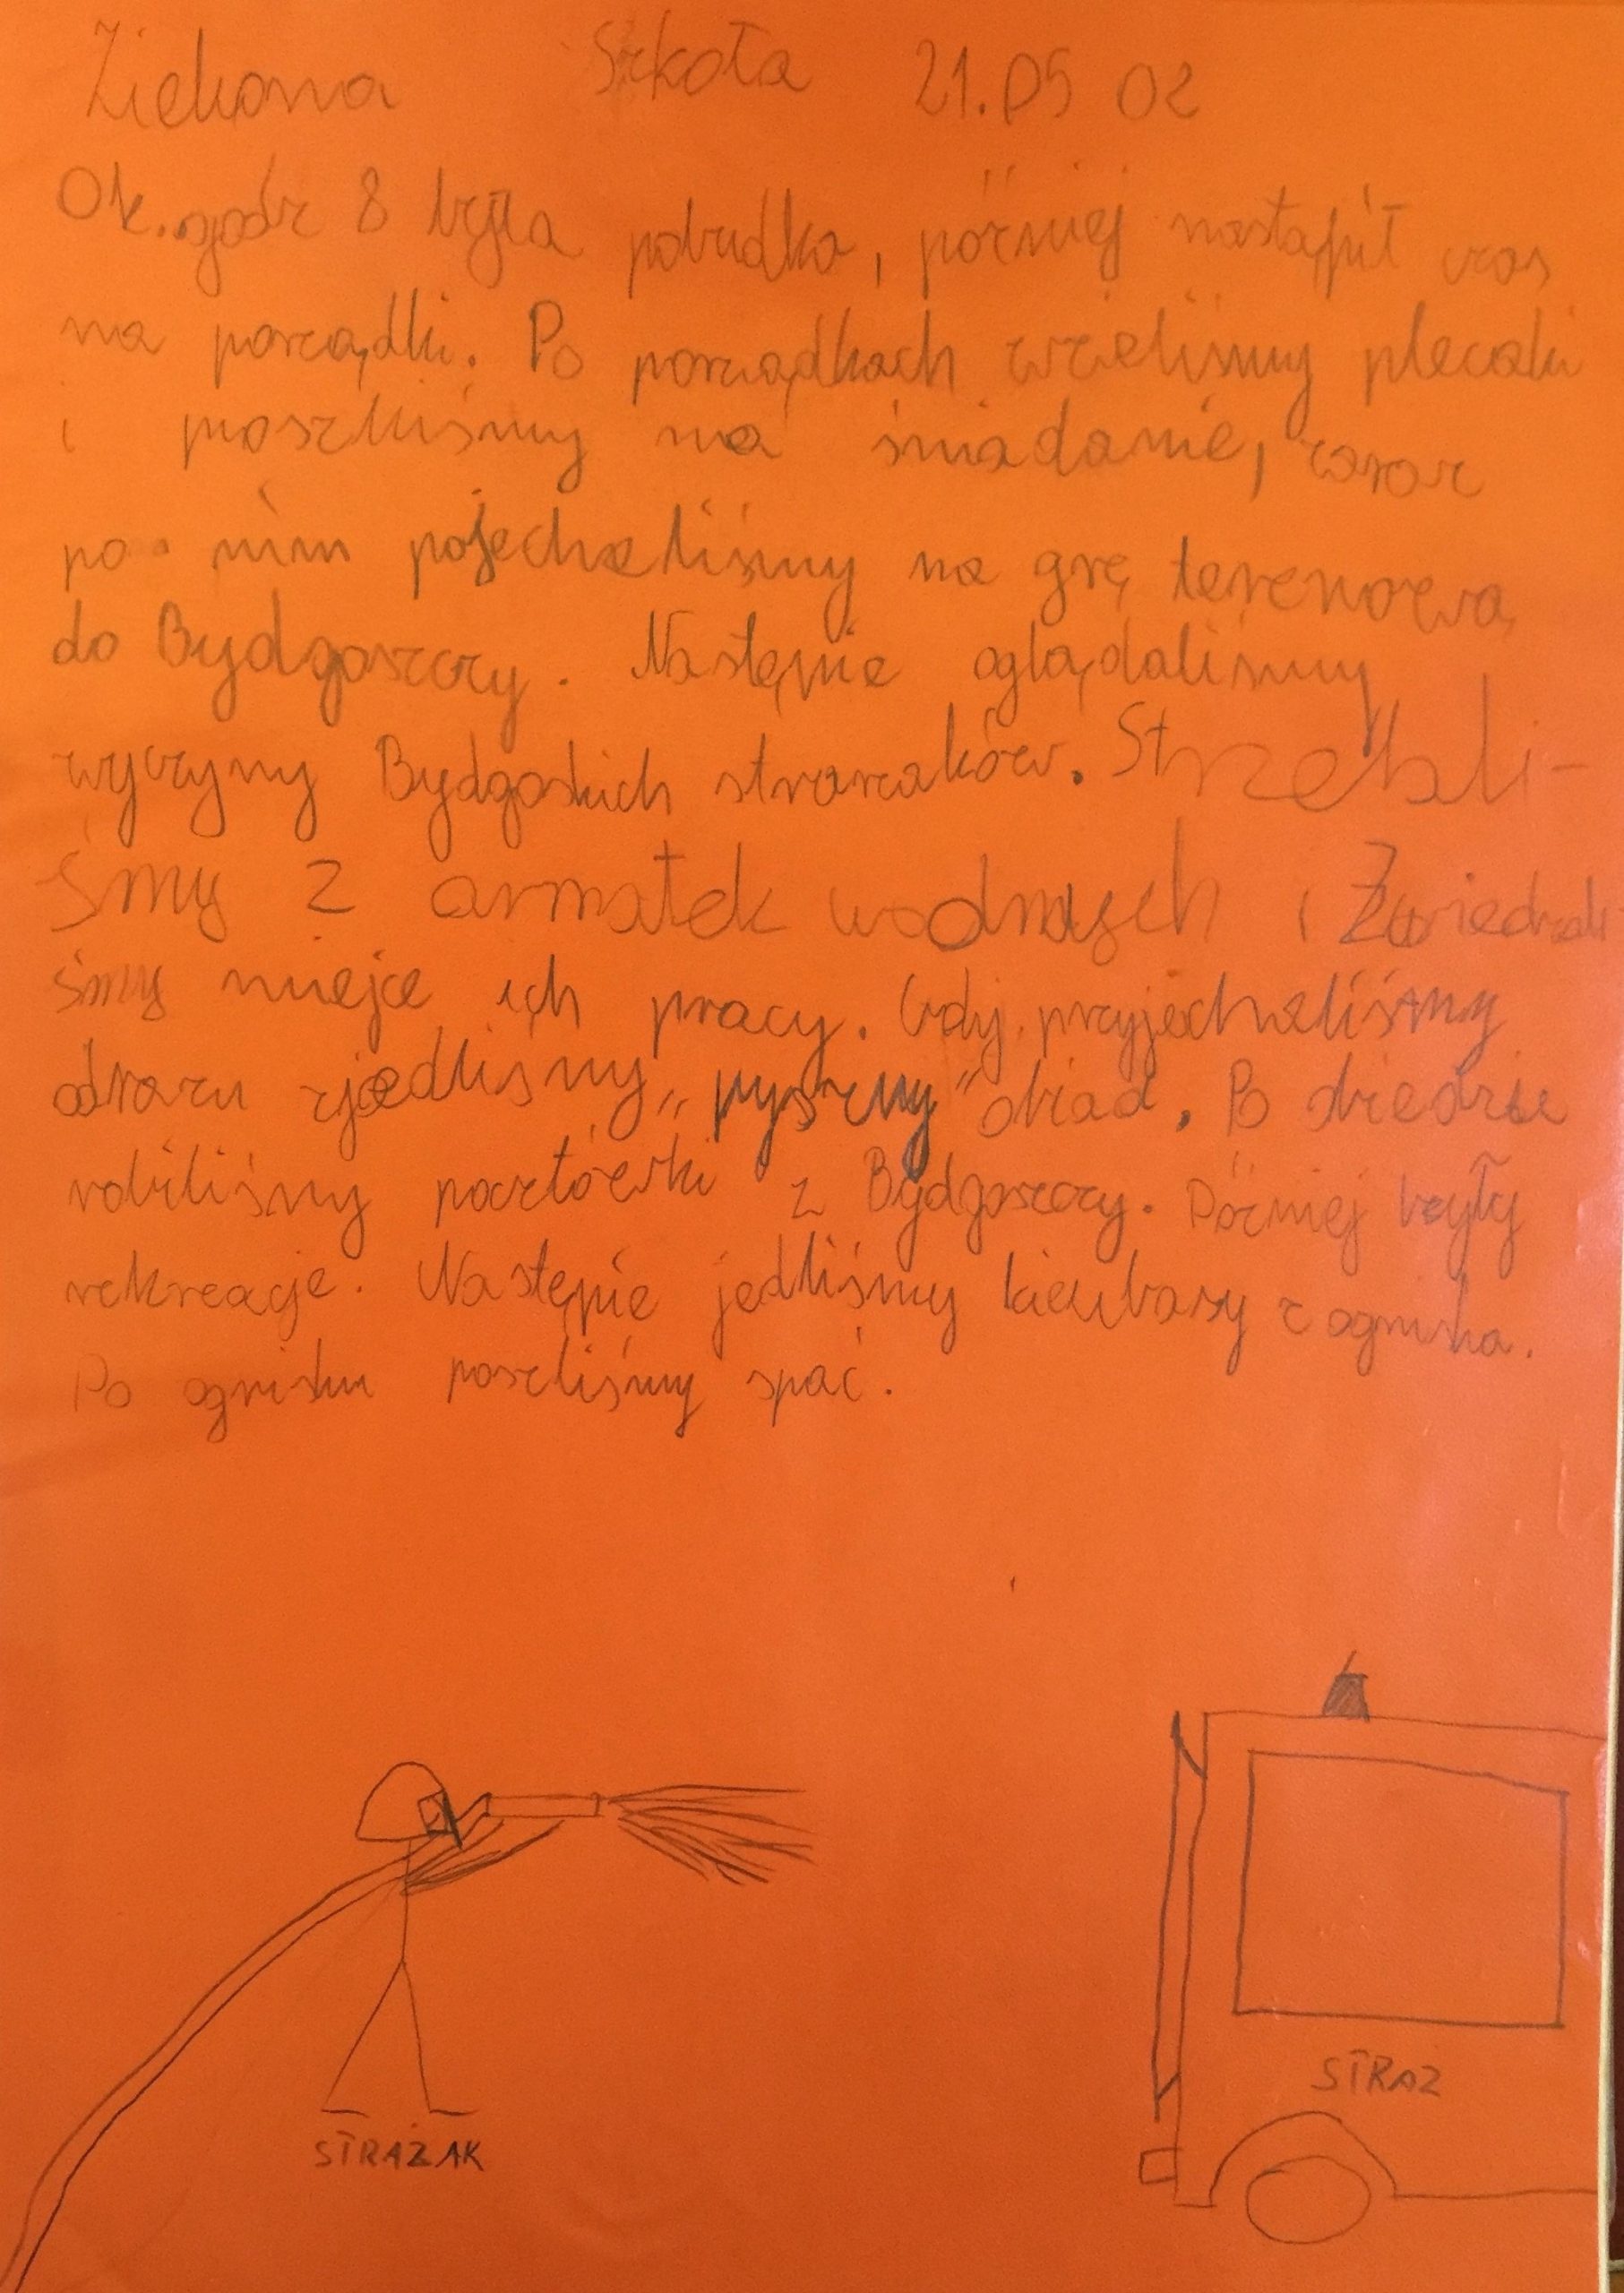 Zielona Szkoła 21.05 02
Ok. godz 8 była pobudka, póżniej nastąpił czas
na porządki. Po porządkach wzieliśmy plecaki
i poszliśmy na śniadanie, zaraz
po nim pojechaliśmy na grę terenową
do Bydgoszczy. Następnie oglądaliśmy
wyczyny Bydgoskich strarzaków. Strzelali-
śmy z armatek wodnych i Zwiedzali
śmy miejce ich pracy. Gdy przyjechaliśmy
odrazu zjedliśmy „pyszny" obiad. Po obiedzie
robiliśmy pocztówki z Bydgoszczy. Póżniej były
rekreacje. Następnie jedliśmy kiełbasy z ogniska.
Po ognisku poszliśmy spać.
STRAŻAK
STRAZ